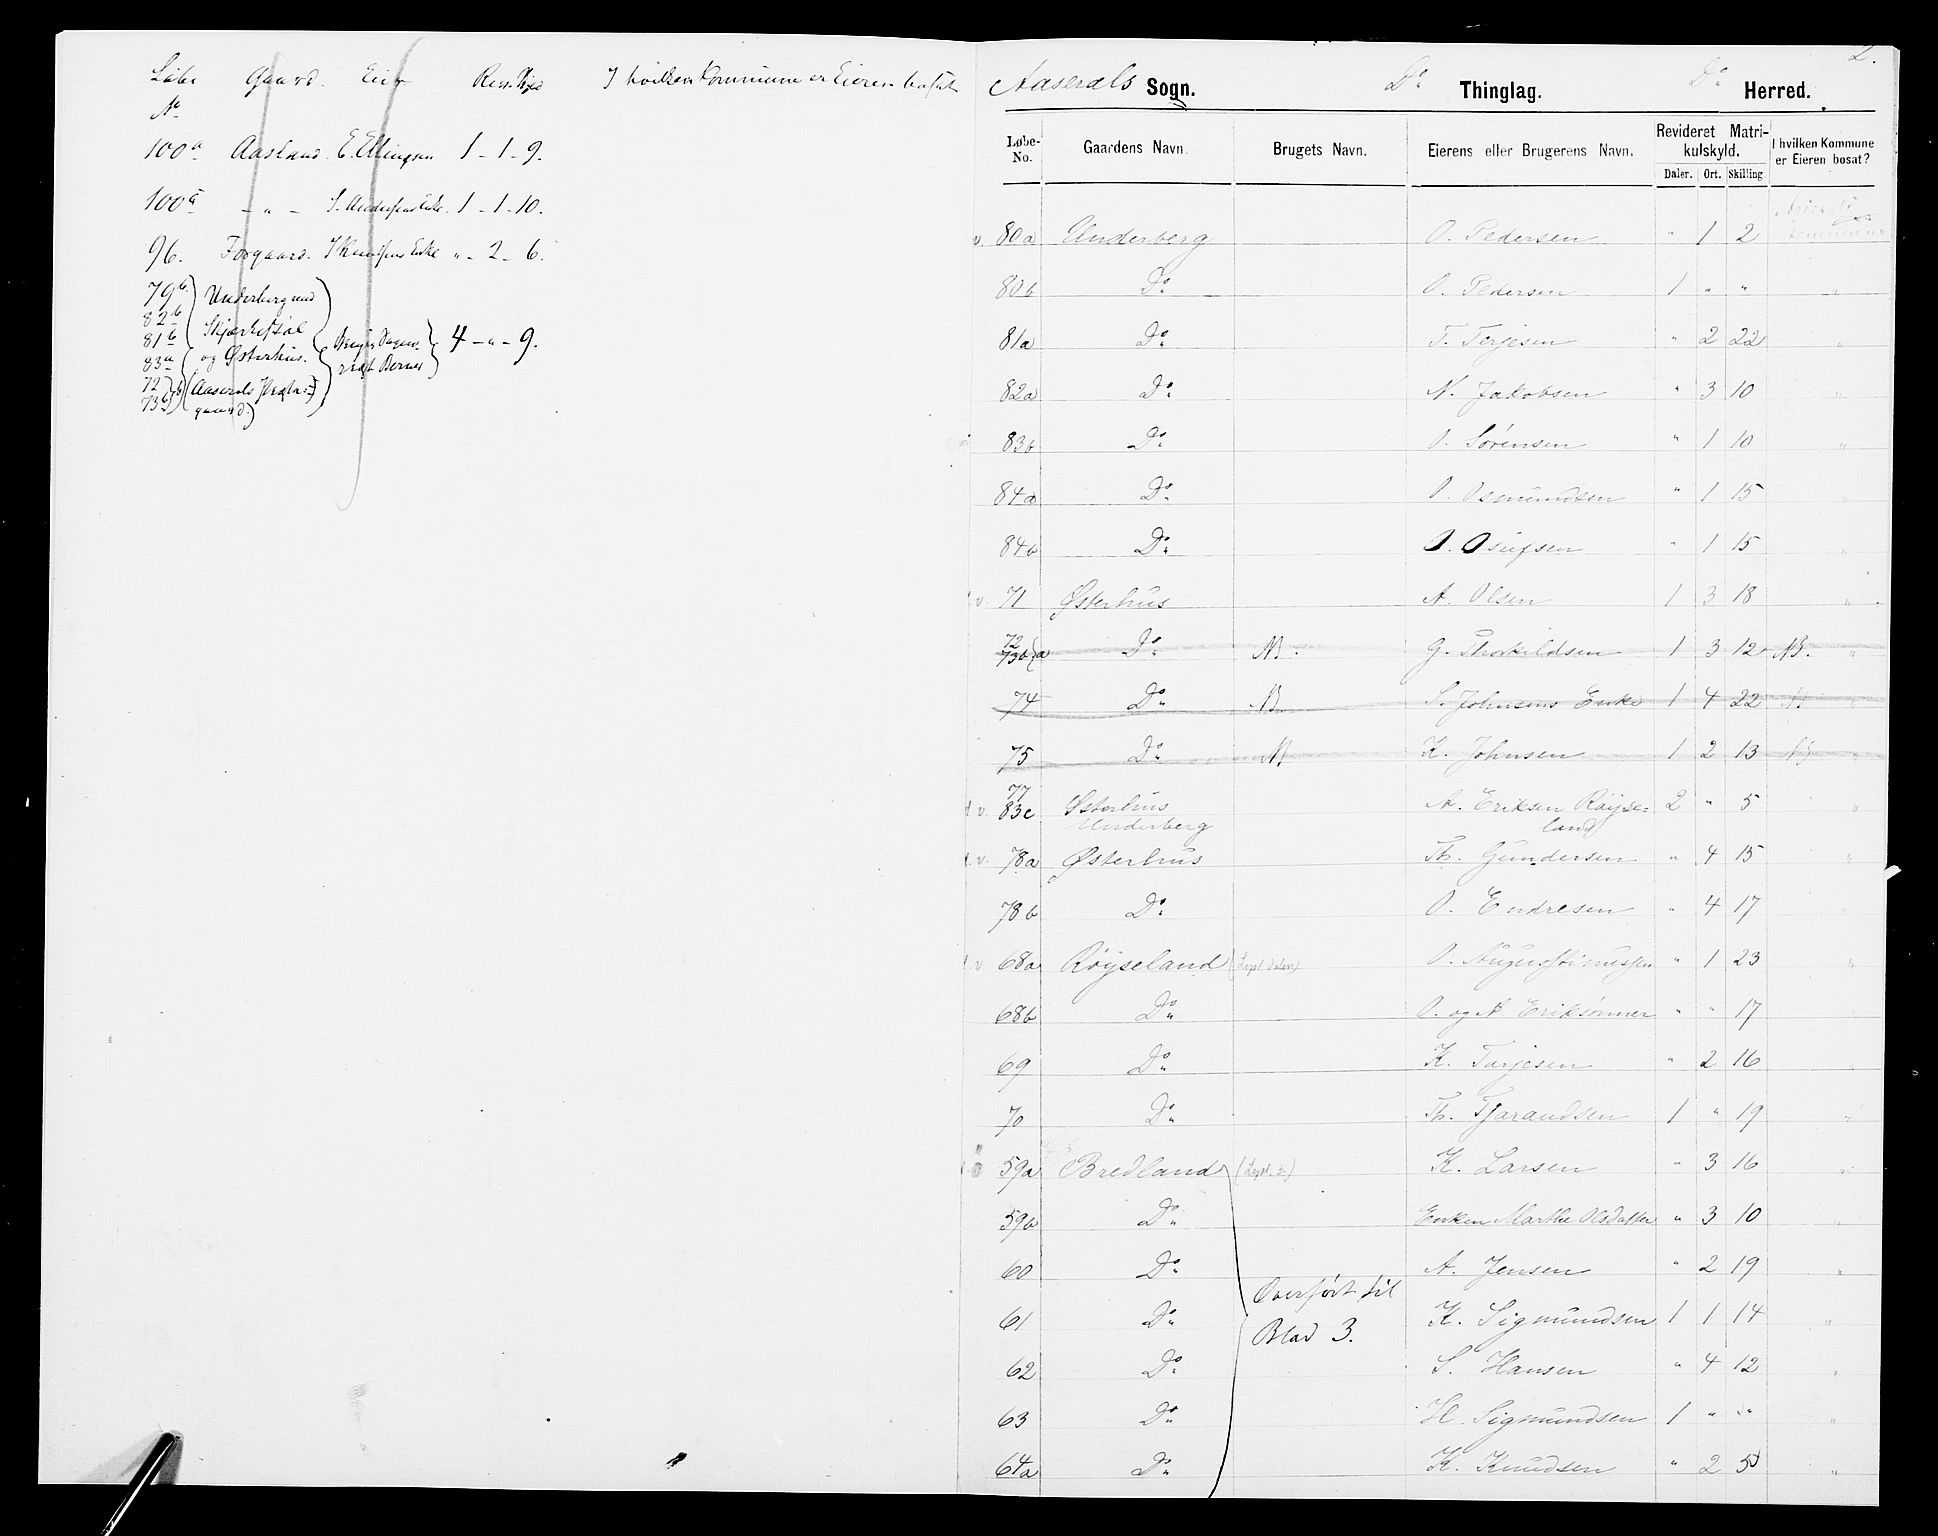 Løbe Gaard. Eier Rev. Skyld I hvilken Kommune er Eieren bosat
No
100a Aasland. E. Ellingsen 1 - 1 - 9.
100c - " - S. Andersens Enke. 1 - 1 - 10.
96. Fosgaard. J Knudsens Enke " - 2 - 6.
79b Underberg med
82b Skjerkefjøl
81b og Østerhus. 4 - " - 9.
83a
72 (Aaserals Præste-
73b gaard.)
2.
Aaserals Sogn. Do Thinglag. Do Herred.
Løbe-No. Gaardens Navn. Brugets Navn. Eierens eller Brugerens Navn. Revideret Matrikulskyld. I hvilken Kommune er Eieren bosat?
Daler. Ort. Skilling
v. 80a Underberg O. Pedersen " 1 2 Aaserals Kommune
80b Do O. Pedersen 1 " " "
81a Do T. Terjesen " 2 22 "
82a Do N. Jakobsen " 3 10 "
83b Do O. Sørensen " 1 10 "
84a Do O. Osmundsen " 1 15 "
84b Do O. Osufsen " 1 15 "
v. 71 Østerhus A. Olsen 1 3 18 "
72
73b a Do N. G. Thorkildsen 1 3 12 NB. "
74 Do N S. Johnsens Enke 1 4 22 "
75 Do N K. Johnsen 1 2 13 NB "
77
v. 83c Østerhus A. Eriksen Røyse- 2 " 5 "
Underberg land
v. 78a Østerhus Th. Gundersen " 4 15 "
78b Do O. Endresen " 4 17 "
v 68a Røyseland O. Augustinussen " 1 23 "
68b Do O. og A Eriksønner " " 17 "
69 Do K. Tarjesen " 2 16 "
70 Do Th. Tjarandsen 1 " 19 "
59a Bredland K. Larsen " 3 16 "
59b Do Enken Marthe Olsdatter " 3 10 "
60 Do A. Jensen " 2 19 "
Overført til
61 Do K. Sigmundsen 1 1 14 "
Blad 3.
62 Do S. Hansen " 4 12 "
63 Do H. Sigmundsen 1 " " "
64a Do K. Knudsen " 2 5 "